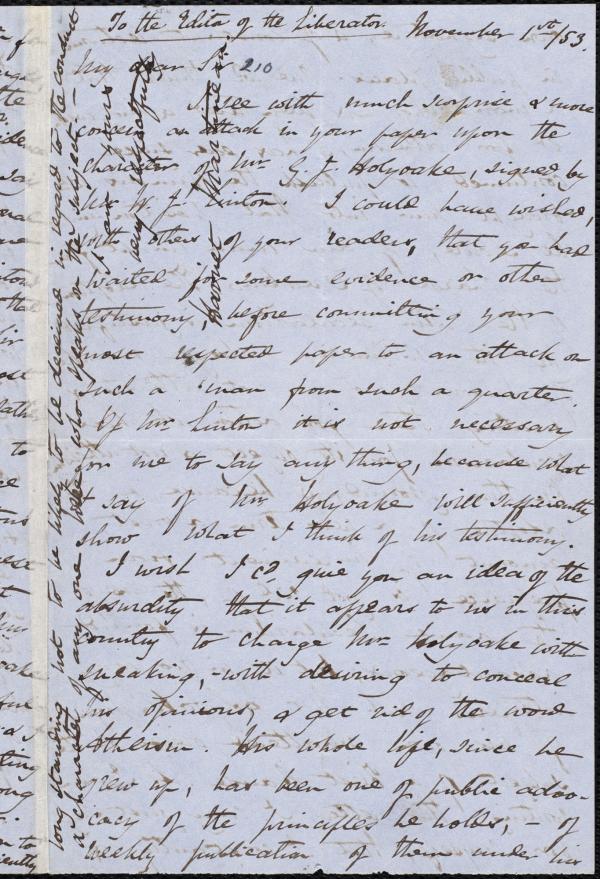 To the Editor of the Liberator. November 1st/53.
My dear Sir 210
I see with much surprise & more
concern an attack in your paper upon the
character of Mr. G. J. Holyoake, signed by
Mr. W. J. Linton. I could have wished,
with others of your readers, that you had
waited for some evidence or other
testimony, before committing your
most respected paper to an attack on
such a man from such a quarter.
Of Mr Linton it is not necessary
for me to say any thing, because what
I say of Mr Holyoake will sufficiently
show what I think of his testimony.
I wish I cd. give you an idea of the
absurdity that it appears to us in this
country to charge Mr Holyoake with
sneaking, - with desiring to conceal
his opinions, & get rid of the word
Atheism. His whole life, since he
grew up, has been one of public advo-
cacy of the principles he holds, - of
weekly publication of them under his
long standing not to be likely to be deceived in regard to the conduct
& character of any one who speaks on the subject. -
I am yours
very respectfully
Harriet Martineau